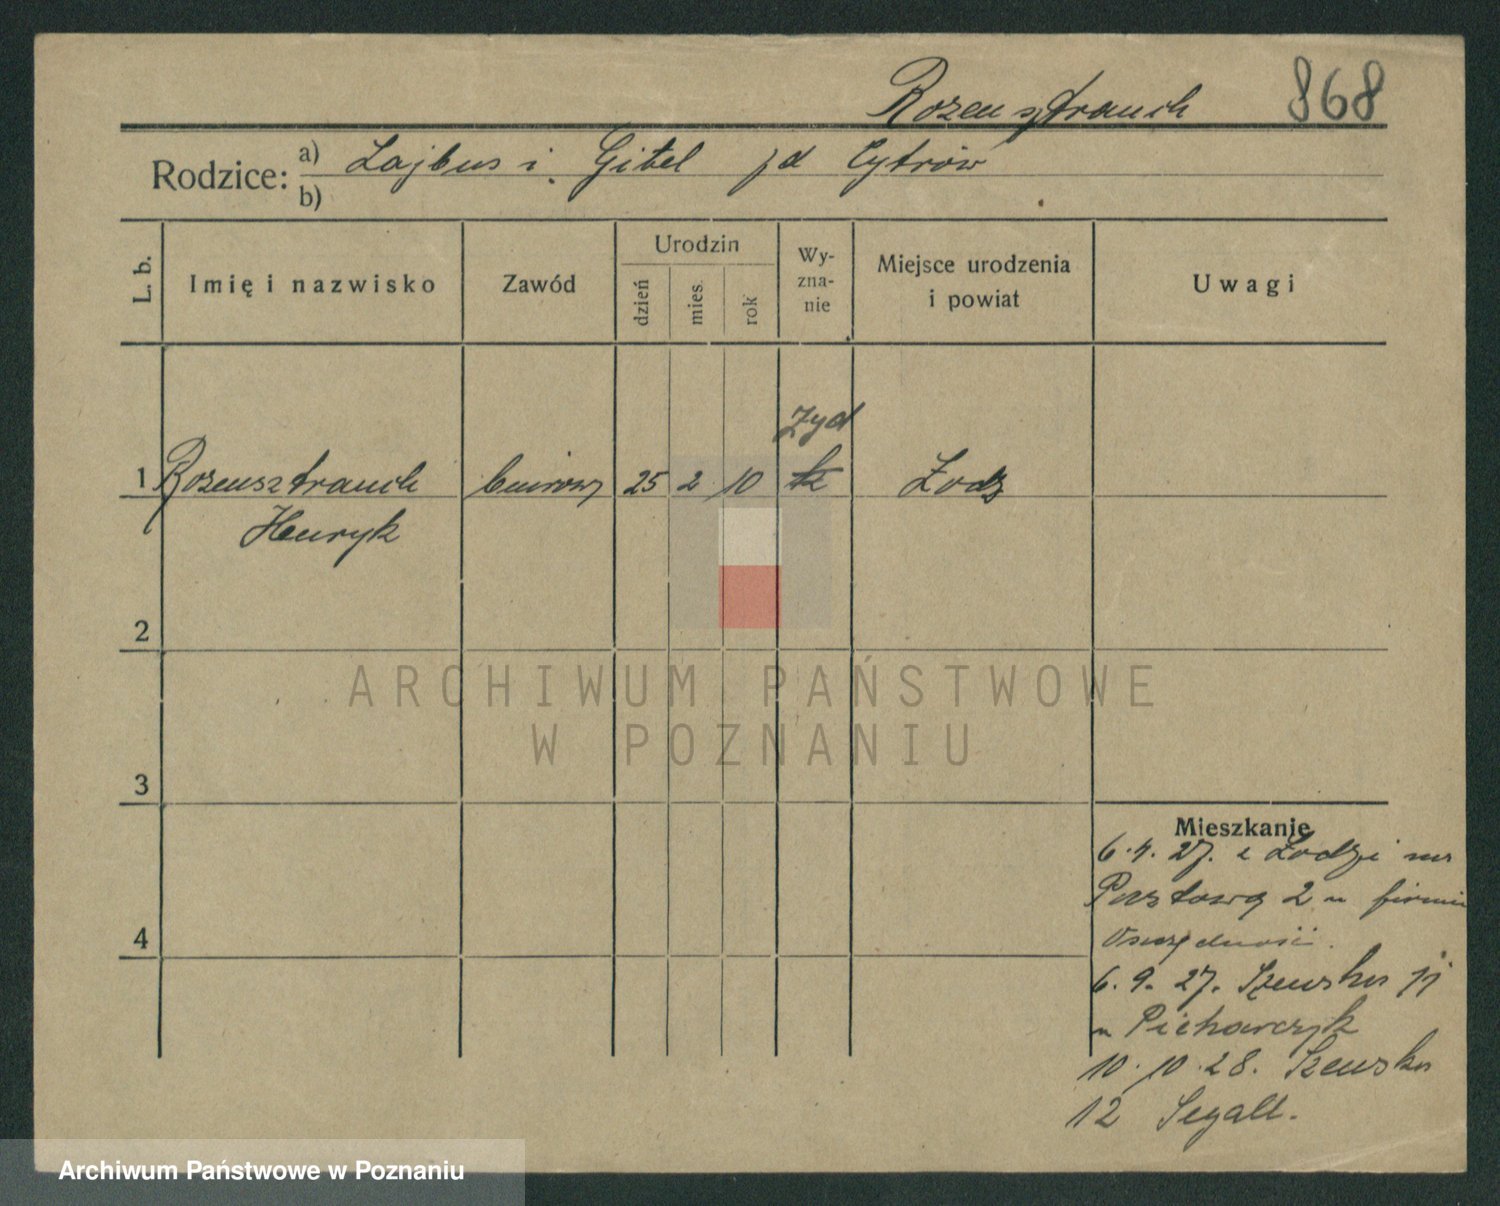 Rozensztrauch 868
Rodzice: a) Lajbus i Gitel zd Cytrów
b)
L. b. Imię i nazwisko Zawód Urodzin dzień mies. rok Wy-zna-nie Miejsce urodzenia i powiat Uwagi
Żyd
1 Rozensztrauch 25 2 10 Łodz
Henryk
2
ARCHIWUM PAŃSTWOWE
W POZNANIU
3
Mieszkanie
6.4.27. z Łodzi na
2 u firmie
4
6.9.27. Szewska 11
u Piechowczyk
10.10.28. Szewska
12 Segall.
Archiwum Państwowe w Poznaniu